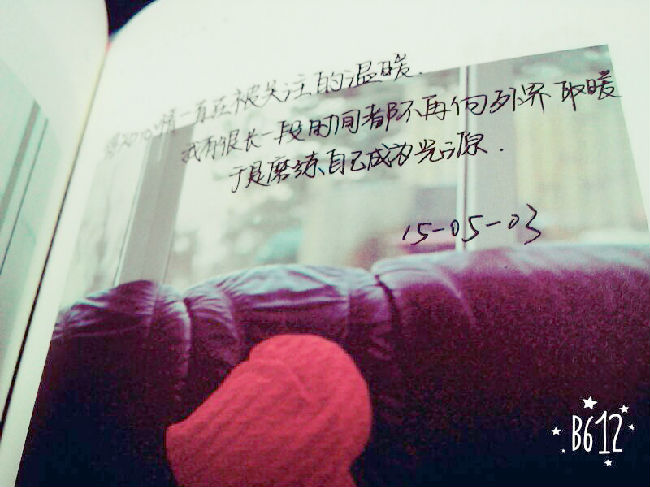 一直在被关注的温暖.
我有很长一段时间都不再向外界取暖
于是磨练自己成为光源.
15-05-03
B612